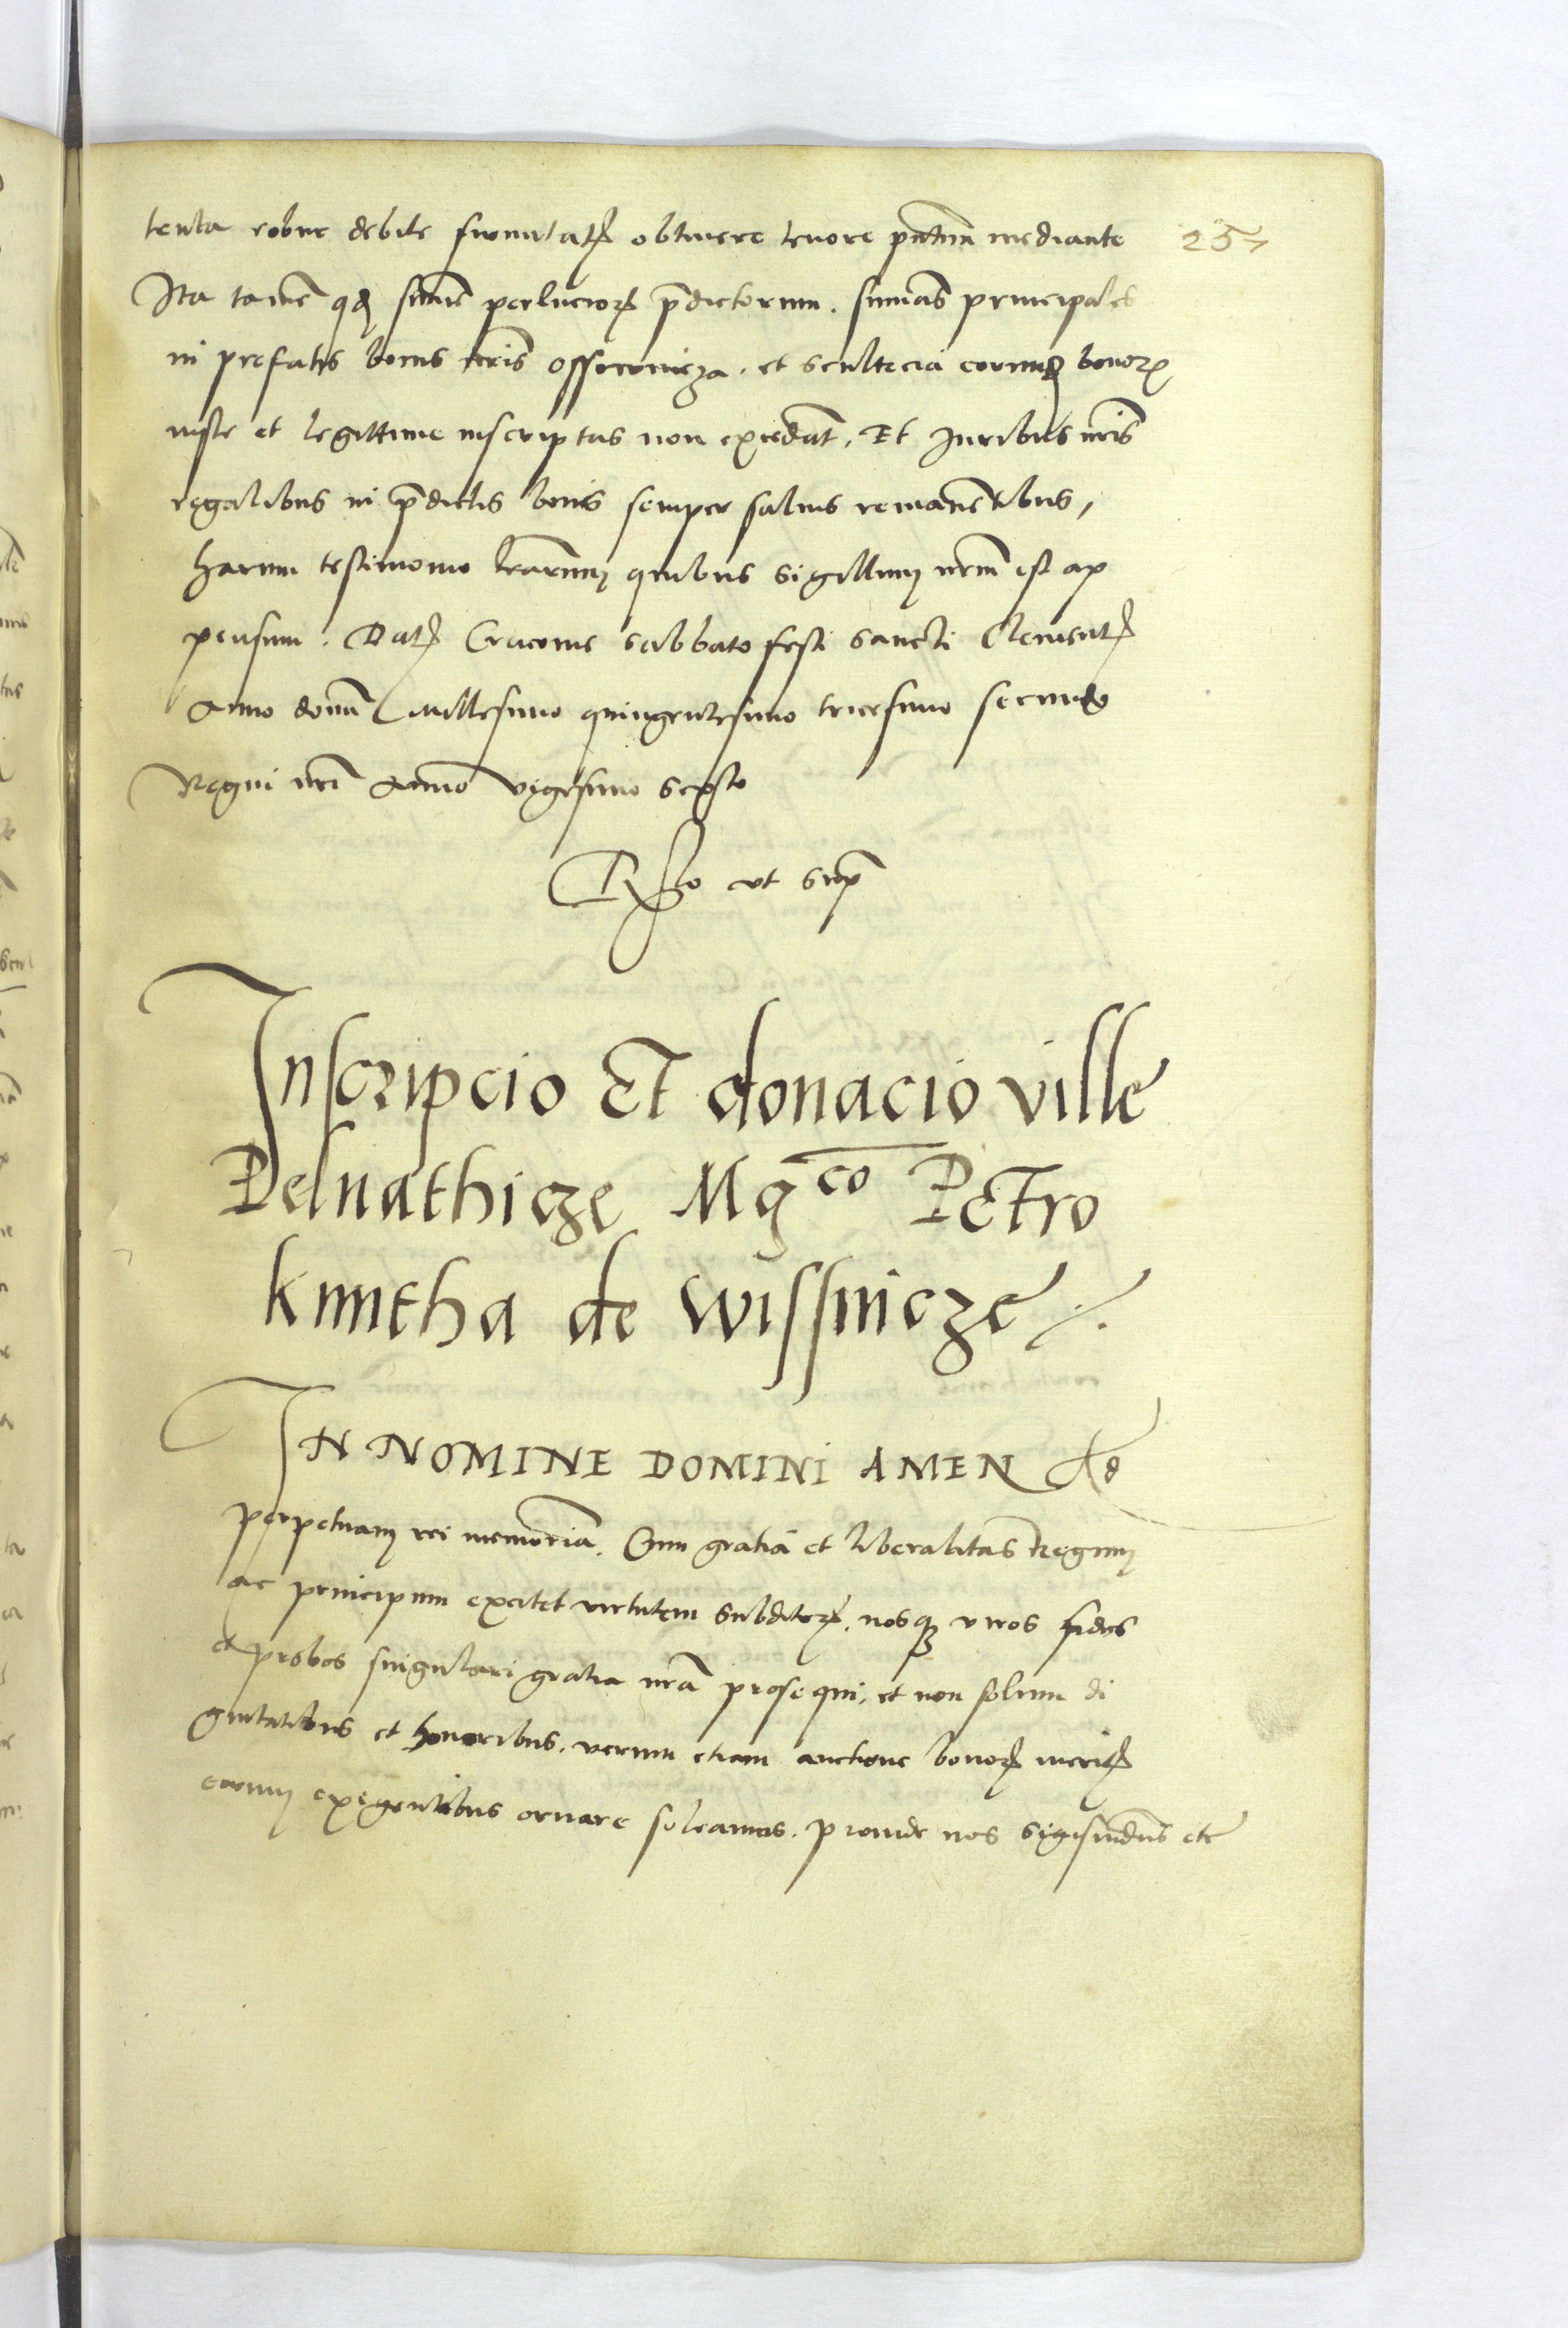 tenta robur debite firmitat obtinere tenore pntium mediante
257
Ita tame qd sume perlucioz pdictorum. sumas principales
in prefatis bonis nris Ossownicza. et scultecia eorund bonoz
iuste et legittime inscriptas non excedat. Et Juribus nris
regalibus in pdictis bonis semper saluis remanetibus,
harum testimonio lrarum quibus sigillum nrm est ap
pensum. Dat Cracovie sabbato festi sancti Clement
Anno domi Millesimo quingentesimo tricesimo secundo
Regni nri Anno vigesimo sexto
ut sup
Inscripcio Et donacio ville
Pelnathicze Mgco Petro
kmitha de wissnicze
IN NOMINE DOMINI AMEN Ad
perpetuam rei memoria. Cum gratia et liberalitas Regum
ac principum excitet virtutem subditoz, nosq viros fidos
et probos singulari gratia nra prosequi, et non solum di
gnitatibus et honoribus. verum etiam auctione bonoz merit
eorum exigentibus ornare soleamus. proinde nos Sigismudus etc